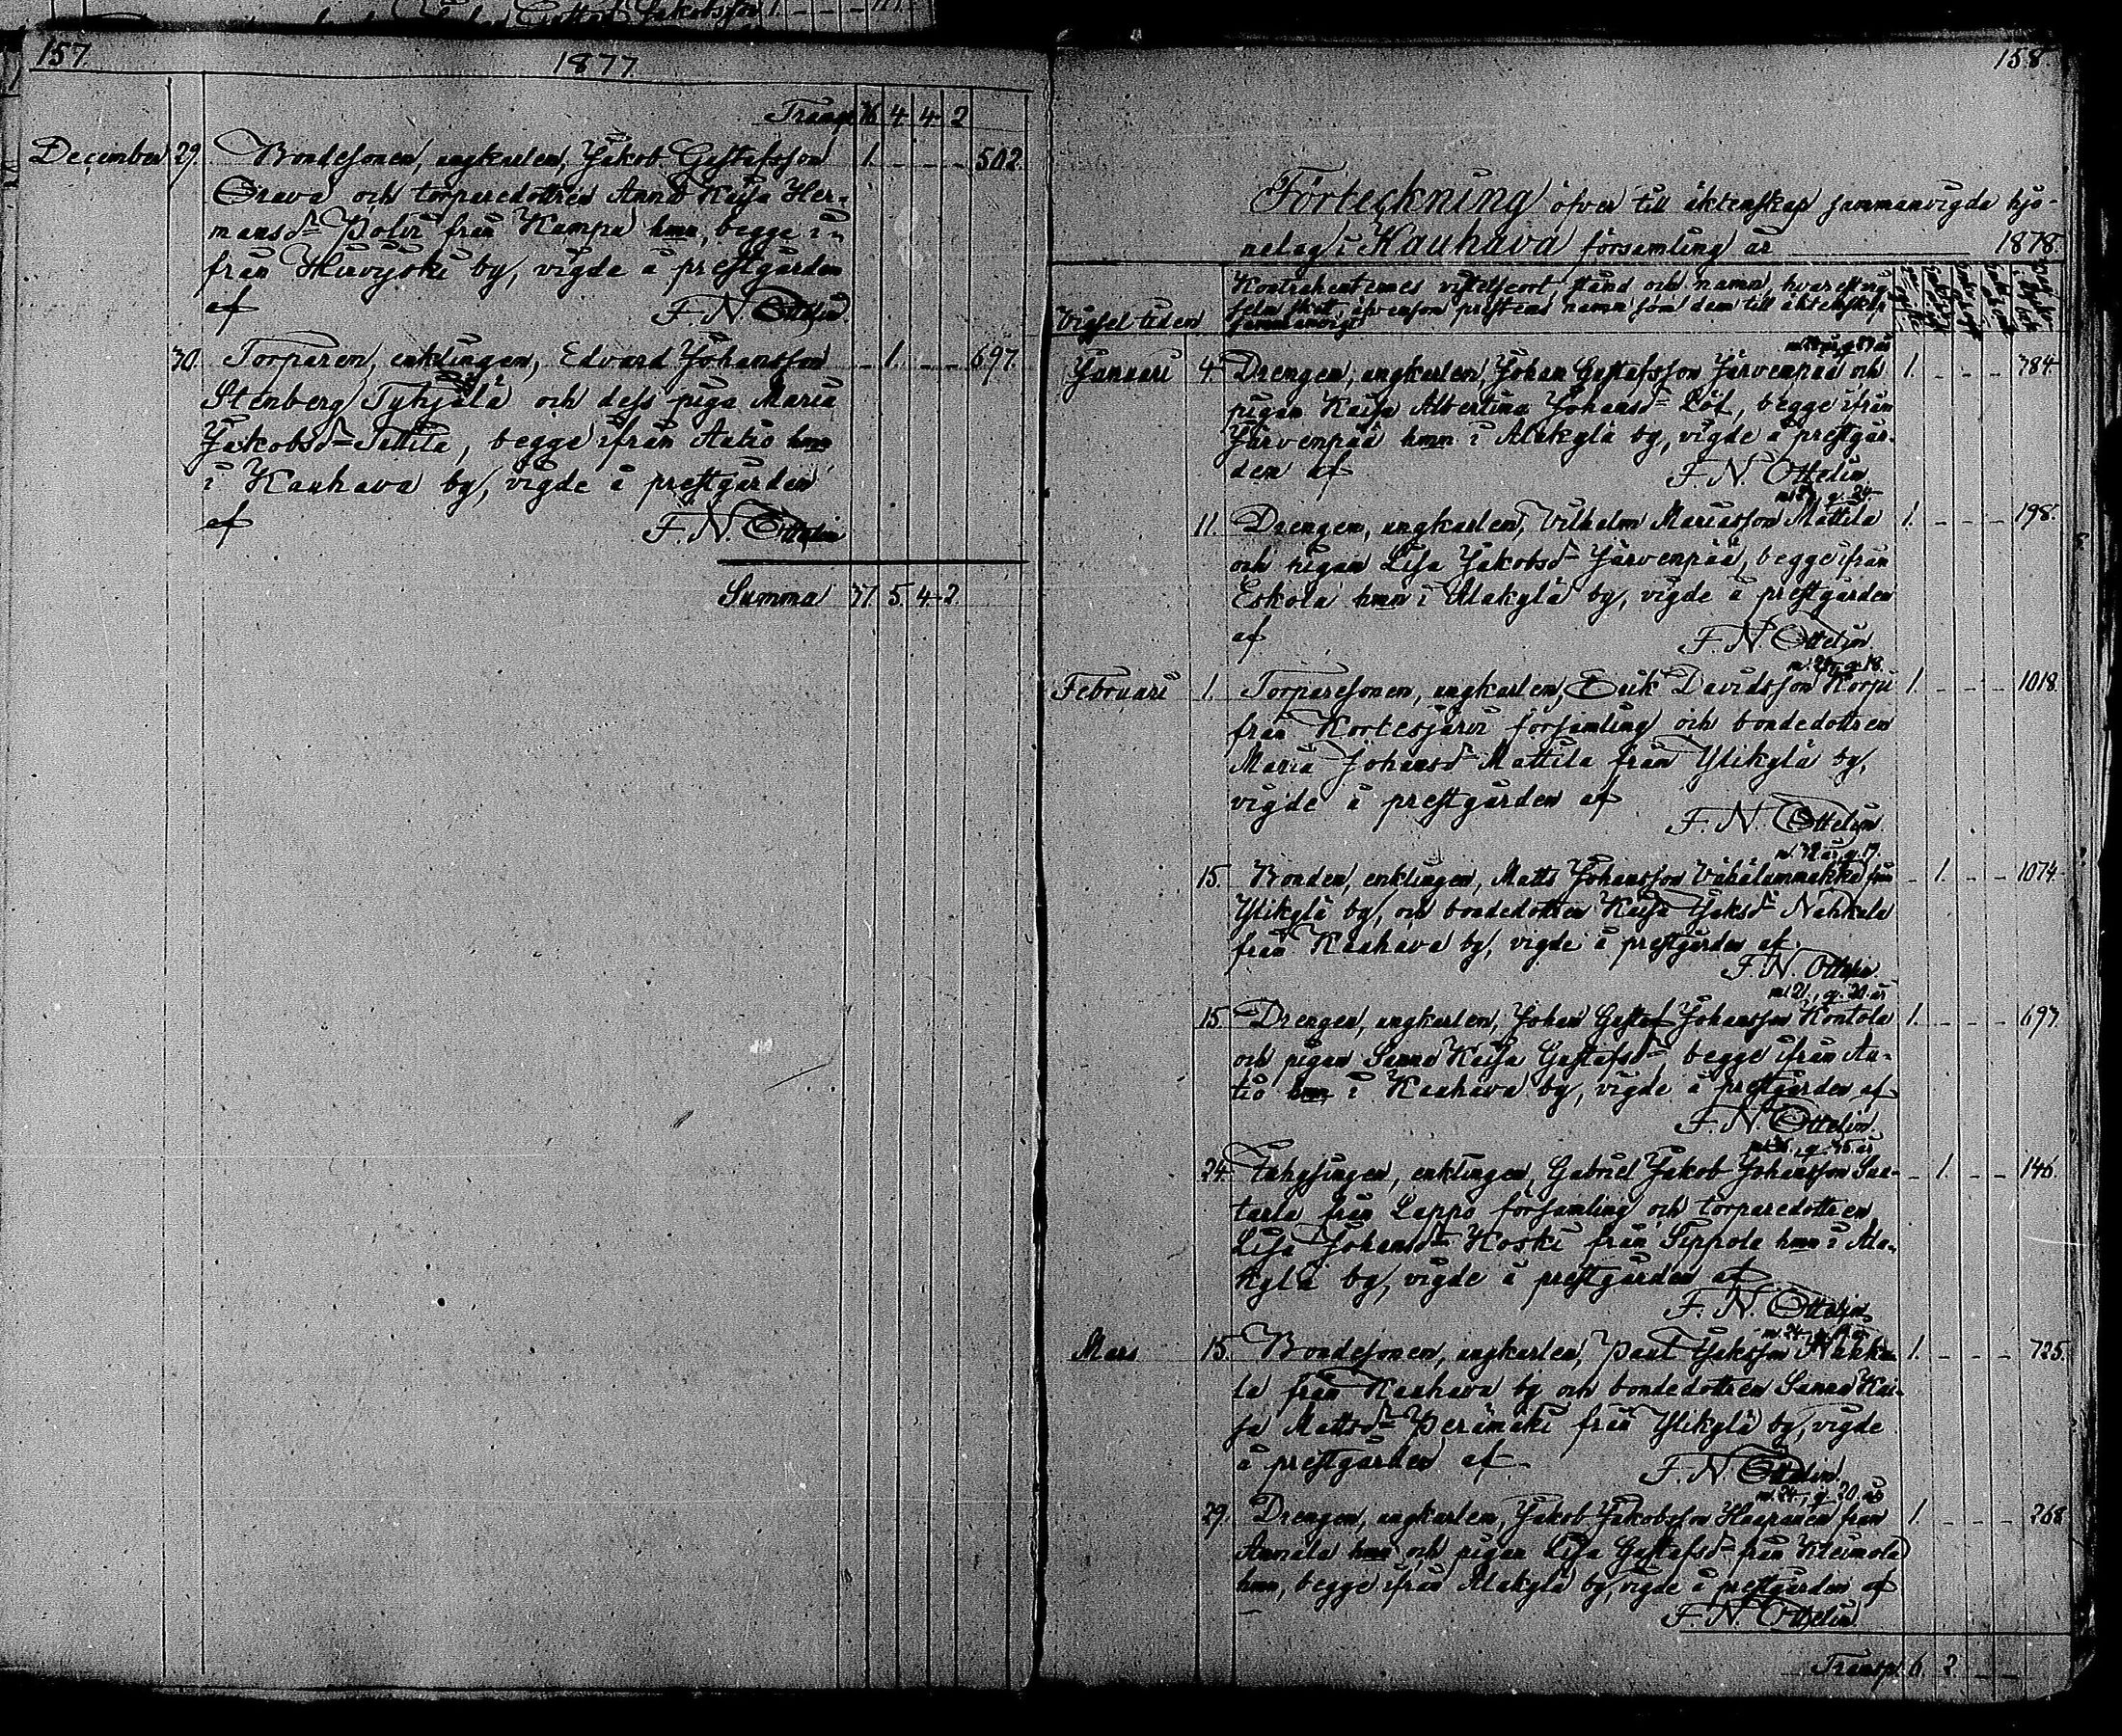 157.
1877.
Transp. 36 4 4 2
December 29. Bondesonen, ungkarlen, Jakob Gustafsson 1. - - - 502.
Orava och torparedottren Anna Kaisa Her-
mansd:r Polvi från Kampa hmn, begge i-
från Hirvijoki by, vigde å prestgården
af F. N. Ottelin
30. Torparen, enklingen, Edvard Johansson - 1. - - 697.
Stenberg Tyhjälä och dess piga Maria
Jakobsd:r Pettila, begge ifrån Antio hmn
i Kauhava by, vigde å prestgården
af F. N. Ottelin
Summa 37. 5. 4. 2.
158.
Förteckning öfver till äktenskap sammanvigda hjo-
nelag i Kauhava församling år 1878.
Vigseltiden
Kontrahenternes vistelseort stånd och namn, hvarest vig-
seln skett, äfvensom prestens namn som dem till äktenskap
sammanvigt
Januari 4. Drengen, ungkarlen, Johan Gustafsson Järvenpää och 1. - - - 784.
pigan Kaisa Albertina Johansd:r Löf, begge ifrån
Järvenpää hmn i Alakylä by, vigde å prestgår-
den af F. N. Ottelin.
g. 24.
11. Drengen, ungkarlen, Vilhelm Mariasson Mattila 1. - - - 198.
och pigan Lisa Jakobsd:r Järvenpää, begge ifrån
Eskola hmn i Alakylä by, vigde å prestgården
af F. N. Ottelin
g. 18.
Februari 1. Torparesonen, ungkarlen, Erik Davidsson Korpi 1. - - - 1018.
från Kortesjärvi församling och bondedottren
Maria Johansd:r Mattila från Ylikylä by,
vigde å prestgården af
F. N. Ottelin.
15. Bonden, enklingen, Matts Johansson Vähälummukka från - 1. - - 1074.
Ylikylä by, och bondedottren Kaisa Jaksd:r Nahkala
från Kauhava by, vigde å prestgården af
F. N. Ottelin.
m. 21, g. 20. år
15. Drengen, ungkarlen, Johan Gustaf Johansson Kontola 1. - - - 697.
och pigan Sanna Kaisa Gustafsd:r begge ifrån An-
tio hmn i Kauhava by, vigde å prestgården af
F. N. Ottelin.
24. Inhysingen, enklingen, Gabriel Jakob Johansson Saa- - 1. - - 146.
tarla från Lappo församling och torparedottren
Lisa Johansd:r Koski från Pippola hmn i Ala-
kylä by, vigde å prestgården af
F. N. Ottelin.
Mars 15. Bondesonen, ungkarlen, Paul Jaksson Nahka- 1. - - - 725.
la från Kauhava by och bondedottren Sanna Kai-
sa Mattsd:r Perämäki från Ylikylä by, vigde
å prestgården af F. N. Ottelin.
m. 24, g. 20. år
29. Drengen, ungkarlen, Jakob Jakobsson Haapanen från 1. - - - 268.
Annala hmn och pigan Lisa Gustafsd:r från Kleimola
hmn, begge ifrån Alakylä by, vigde å prestgården af
F. N. Ottelin.
Transp. 6 2 - -